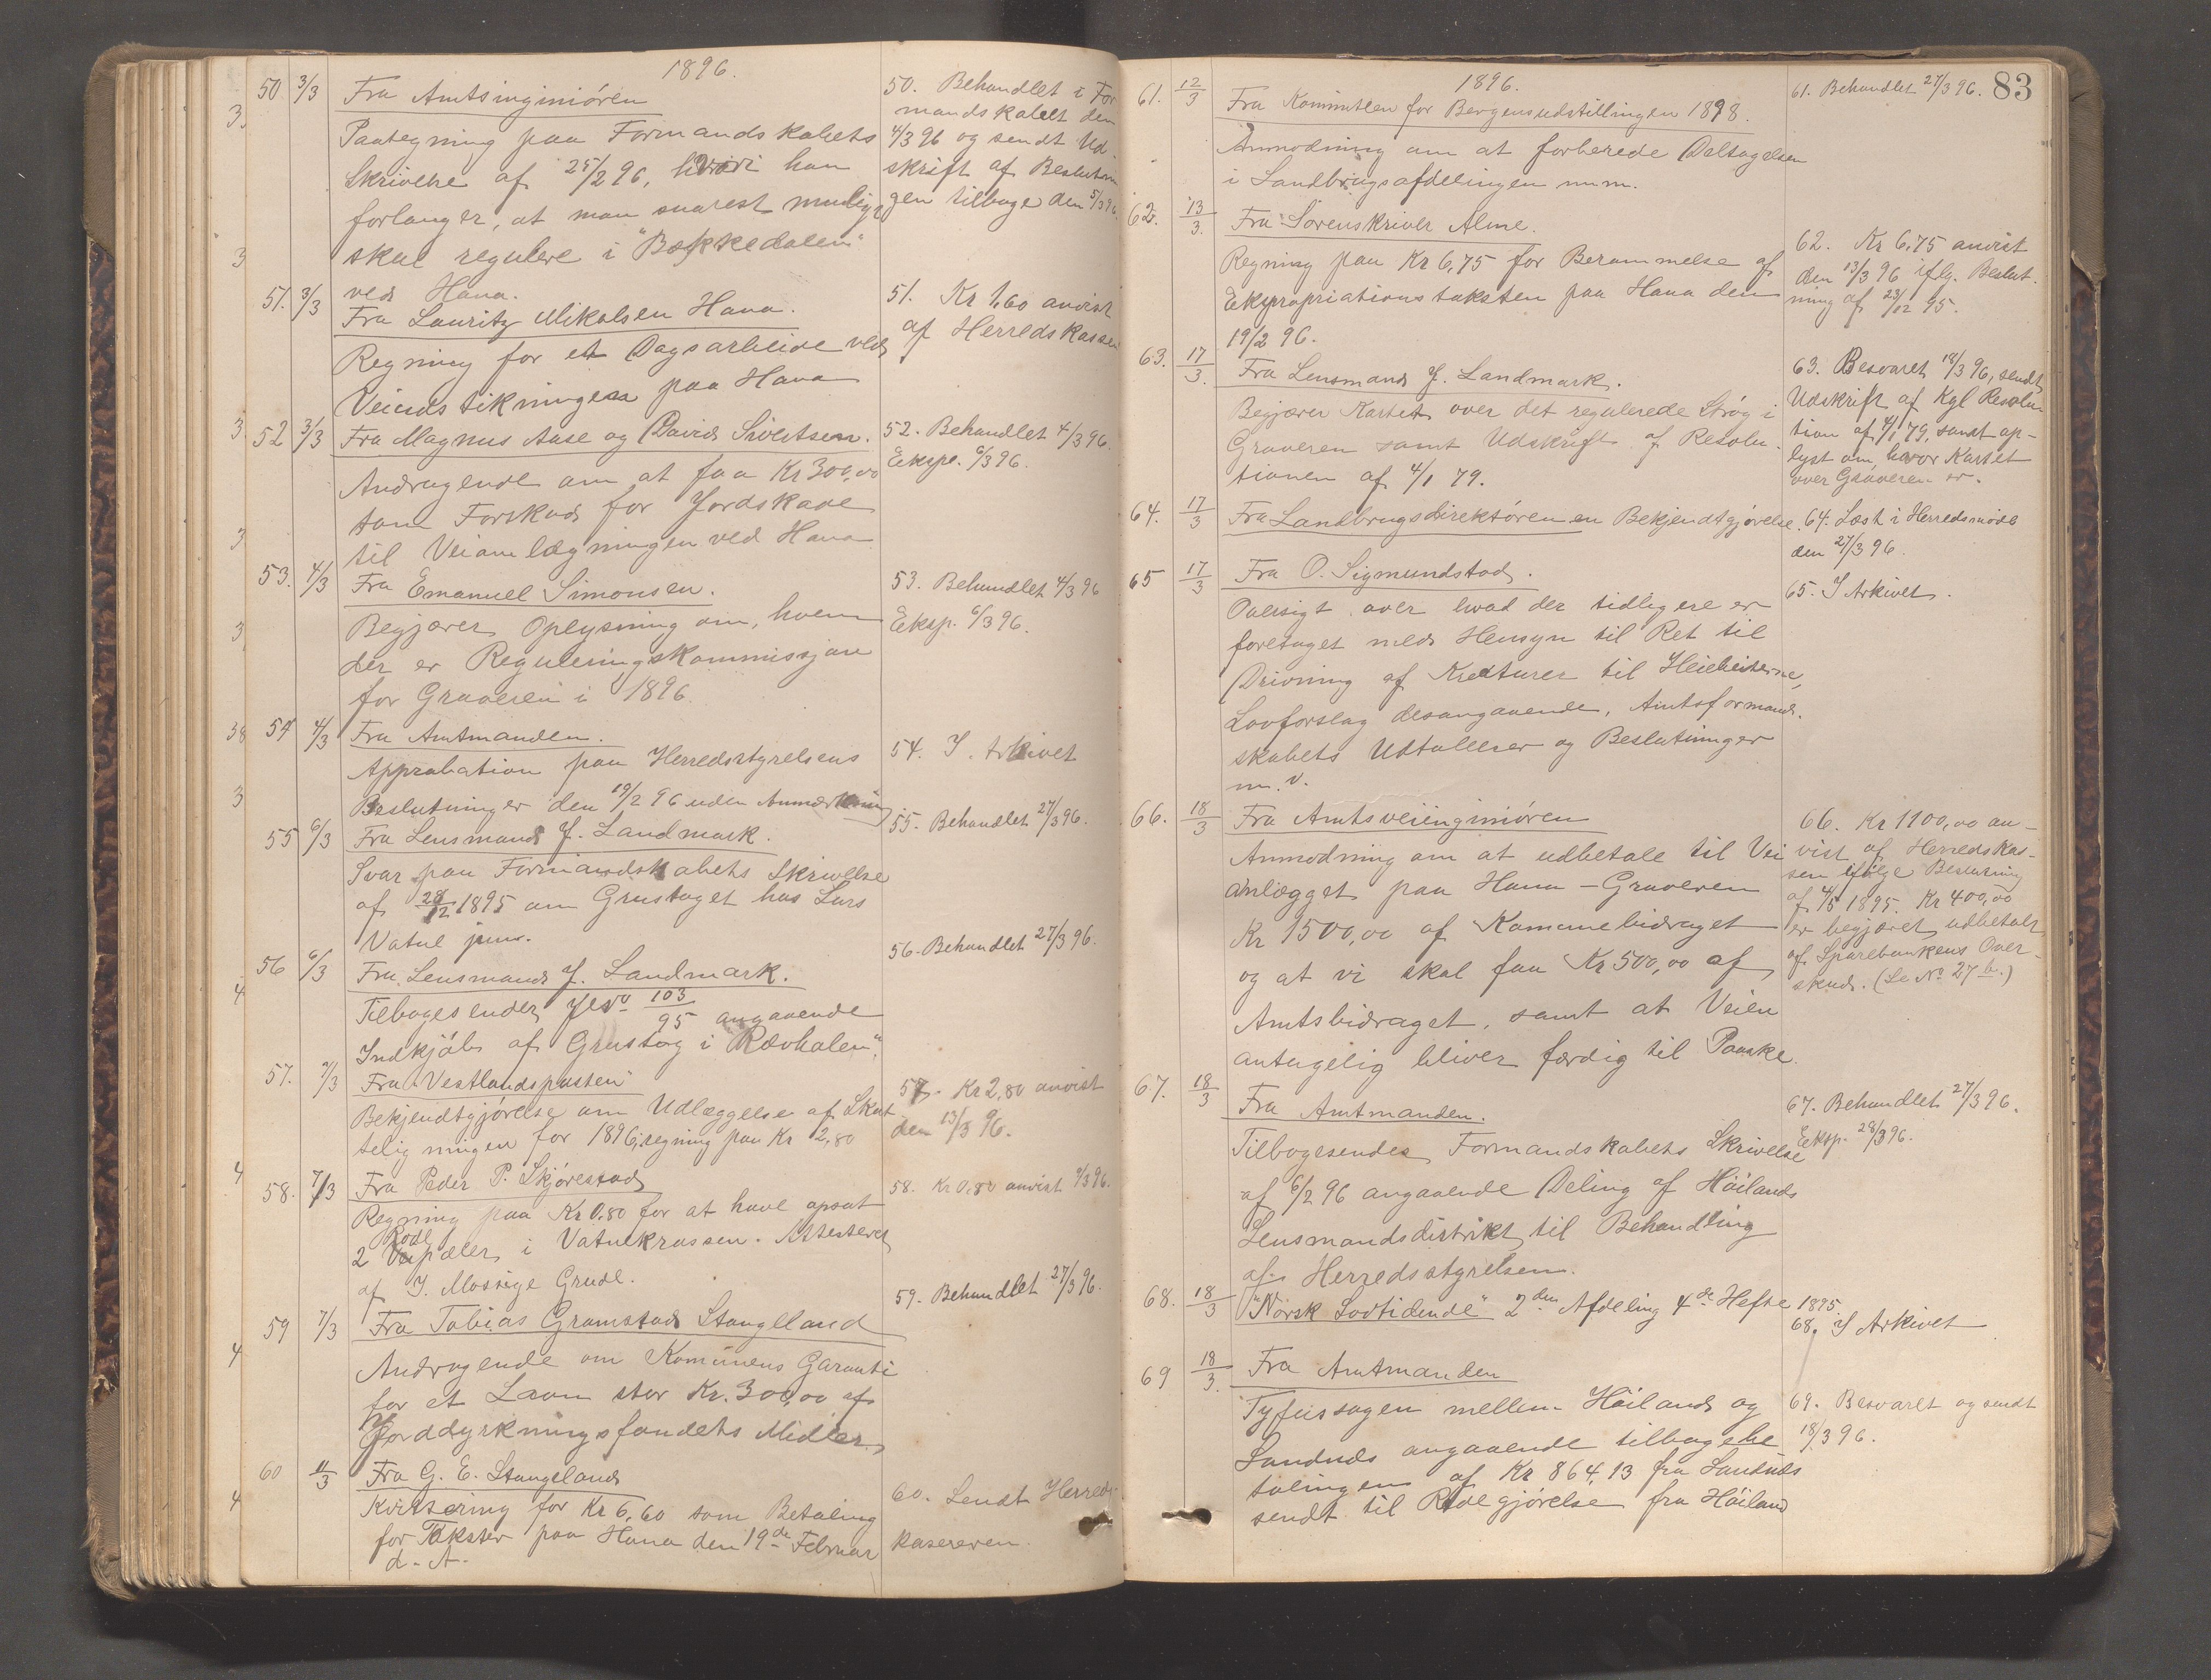 1896.
50 3/3 Fra Amtsinginiören
Paategning paa Formandskabets
Skrivelse af 25/2 96, hvori han
forlanger, at man snarest muligt
skal regulere i "Bækkedalen"
ved Hana.
50. Behandlet i For
mandskabet den
4/3 96 og sendt Ud-
skrift af Beslutnin
gen tilbage den 5/3 96.
51. 3/3 Fra Lauritz Mikalsen Hana.
Regning for et Dagsarbeide ved
Veiudstikningen paa Hana
51. Kr 1,60 anvist
af Herredskassen
52 3/3 Fra Magnus Aase og David Sivertsen.
Andragende om at faa Kr 300,00
som Forskud for Jordskade
til Veianlægningen ved Hana
52. Behandlet 4/3 96.
Ekspe. 6/3 96.
53. 4/3 Fra Emanuel Simonsen.
Begjærer Oplysning om, hvem
der er Reguleringskommissjon
for Graveren i 1896.
53. Behandlet 4/3 96
Eksp. 6/3 96.
54 4/3 Fra Amtmanden.
Approbation paa Herredsstyrelsens
Beslutninger den 19/2 96 uden Anmærkning
54. I Arkivet
55 6/3 Fra Lensmand J. Landmark.
Svar paa Formandskabets Skrivelse
af 28/12 1895 om Grustaget hos Lars
Vatne jun.
55. Behandlet 27/3 96.
56 6/3 Fra Lensmand J. Landmark.
Tilbagesender 103/95 angaaende
Indkjöb af Grustag i "Rævhalen".
56. Behandlet 27/3 96.
57. 7/3 Fra "Vestlandsposten"
Bekjendtgjörelse om Udlæggelse af Skat
teligningen for 1896; regning paa Kr 2,80
57. Kr 2,80 anvist
den 13/3 96.
58. 7/3 Fra Peder P. Skjörestad
Regning paa Kr 0,80 for at have opsat
Rode
2 pæler i Vatnekrossen. Attesteret
af I. Mossige Grude.
58. Kr 0,80 anvist 9/3 96.
59 7/3 Fra Tobias Gramstad Stangeland
Andragende om Kommunens Garanti
for et Laan stor Kr. 300,00 af
Jorddyrkningsfondets Midler.
59. Behandlet 27/3 96.
60 11/3 Fra G. E. Stangeland
Kvittering for Kr 6,60 som Betaling
for Takster paa Hana den 19de Februar
d. A.
60. Sendt Herreds-
kassereren.
83
1896.
61. 12/3 Fra Komiteen for Bergensudstillingen 1898.
Anmodning om at forberede Deltagelsen
i Landbrugsafdelingen m.m.
61. Behandlet 27/3 96.
62. 13/3. Fra Sorenskriver Alme.
Regning paa Kr 6,75 for Berammelse af
Ekspropriationstaksten paa Hana den
19/2 96.
62. Kr 6,75 anvist
den 13/3 96 iflg. Beslut-
ning af 23/12 95.
63. 17/3. Fra Lensmand J. Landmark.
Begjærer Kartet over det regulerede Strög i
Graveren samt Udskrift af Resolu-
tionen af 4/1 79.
63. Besvaret 18/3 96, sendt
Udskrift af Kgl Resolu
tion af 4/1 79, samt op-
lyst om hvor Kartet
over Graveren er.
64. 17/3 Fra Landbrugsdirektören en Bekjendtgjörelse.
64. Læst i Herredsmöde
den 27/3 96.
65 17/3 Fra O. Sigmundstad.
Oversigt over hvad der tidligere er
foretaget med Hensyn til Ret til
Drivning af Kreaturer til Heiebeiterne,
Lovforslag desangaaende, Amtsformand-
skabets Udtalelser og Beslutninger
m. v.
65. I Arkivet.
66. 18/3 Fra Amtsveiinginiören
Anmodning om at udbetale til Vei
anlægget paa Hana - Graveren
Kr 1500,00 af Kommunebidraget
og at vi skal faa Kr 500,00 af
Amtsbidraget, samt at Veien
antagelig bliver færdig til Paaske.
66. Kr 1100,00 an-
vist af Herredskas-
sen ifölge Beslutning
af 4/5 1895. Kr 400,00
er begjæret udbetalt
af Sparebankens Over-
skud. (Se No 27 b.)
67. 18/3 Fra Amtmanden.
Tilbagesendes Formandskabets Skrivelse
af 6/2 96 angaaende Deling af Höilands
Lensmandsdistrikt til Behandling
af Herredsstyrelsen.
67. Behandlet 27/3 96.
Eksp. 28/3 96.
68. 18/3 "Norsk Lovtidende" 2den Afdeling 4de Hefte 1895.
68. I Arkivet
69 18/3. Fra Amtmanden
Tyfussagen mellem Höiland og
Sandnes angaaende tilbagebe
talingen af Kr 864,13 fra Sandnes
sendt til Redegjörelse fra Höiland
69. Besvaret og sendt
18/3 96.